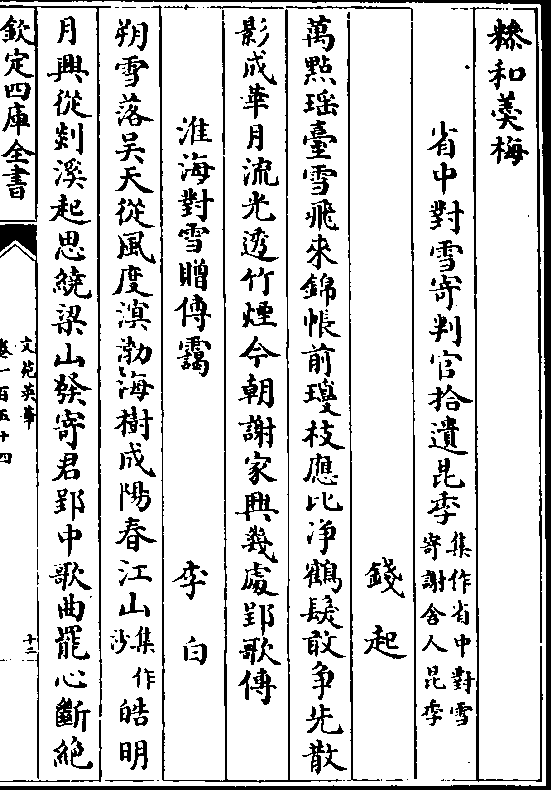 糝和羮梅
省中對雪寄判官拾遺昆季集作省中對雪
寄謝舍人昆季
錢起
萬點瑶臺雪飛來錦帳前瓊枝應比浄鶴髮敢争先散
影成華月流光透竹煙今朝謝家興幾處郢歌傳
淮海對雪贈傅靄
李白
朔雪落吴天從風度溟渤海樹成陽春江山集作
沙皓明
月興從剡溪起思繞梁山發寄君郢中歌曲罷心斷絶
欽定四庫全書
文苑英華
卷一百五十四
十二